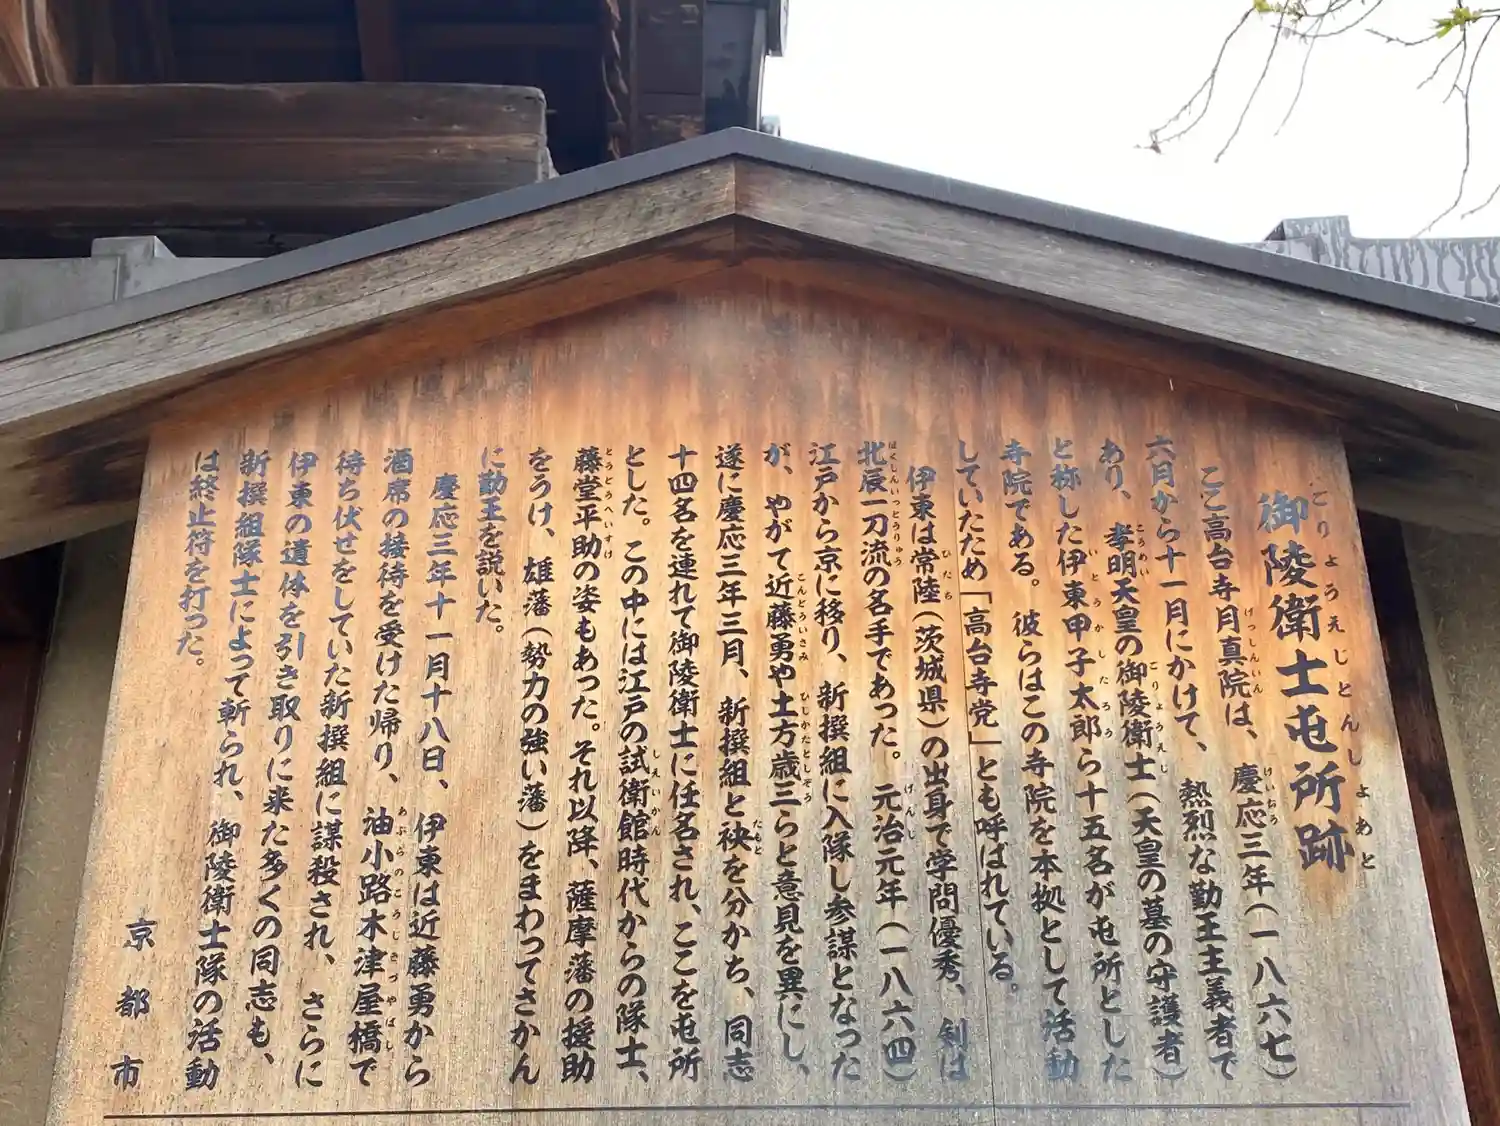 御陵衛士屯所跡
ごりょうえじとんしょあと
ここ高台寺月真院は、慶応三年(一八六七)
六月から十一月にかけて、熱烈な勤王主義者で
あり、孝明天皇の御陵衛士(天皇の墓の守護者)
と称した伊東甲子太郎ら十五名が屯所とした
寺院である。彼らはこの寺院を本拠として活動
していたため「高台寺党」とも呼ばれている。
伊東は常陸(茨城県)の出身で学問優秀、剣は
北辰一刀流の名手であった。元治元年(一八六四)
江戸から京に移り、新撰組に入隊し参謀となった
が、やがて近藤勇や土方歳三らと意見を異にし、
遂に慶応三年三月、新撰組と袂を分かち、同志
十四名を連れて御陵衛士に任名され、ここを屯所
とした。この中には江戸の試衛館時代からの隊士、
藤堂平助の姿もあった。それ以降、薩摩藩の援助
をうけ、雄藩(勢力の強い藩)をまわってさかん
に勤王を説いた。
慶応三年十一月十八日、伊東は近藤勇から
酒席の接待を受けた帰り、油小路木津屋橋で
待ち伏せをしていた新撰組に謀殺され、さらに
伊東の遺体を引き取りに来た多くの同志も、
新撰組隊士によって斬られ、御陵衛士隊の活動
は終止符を打った。
京都市